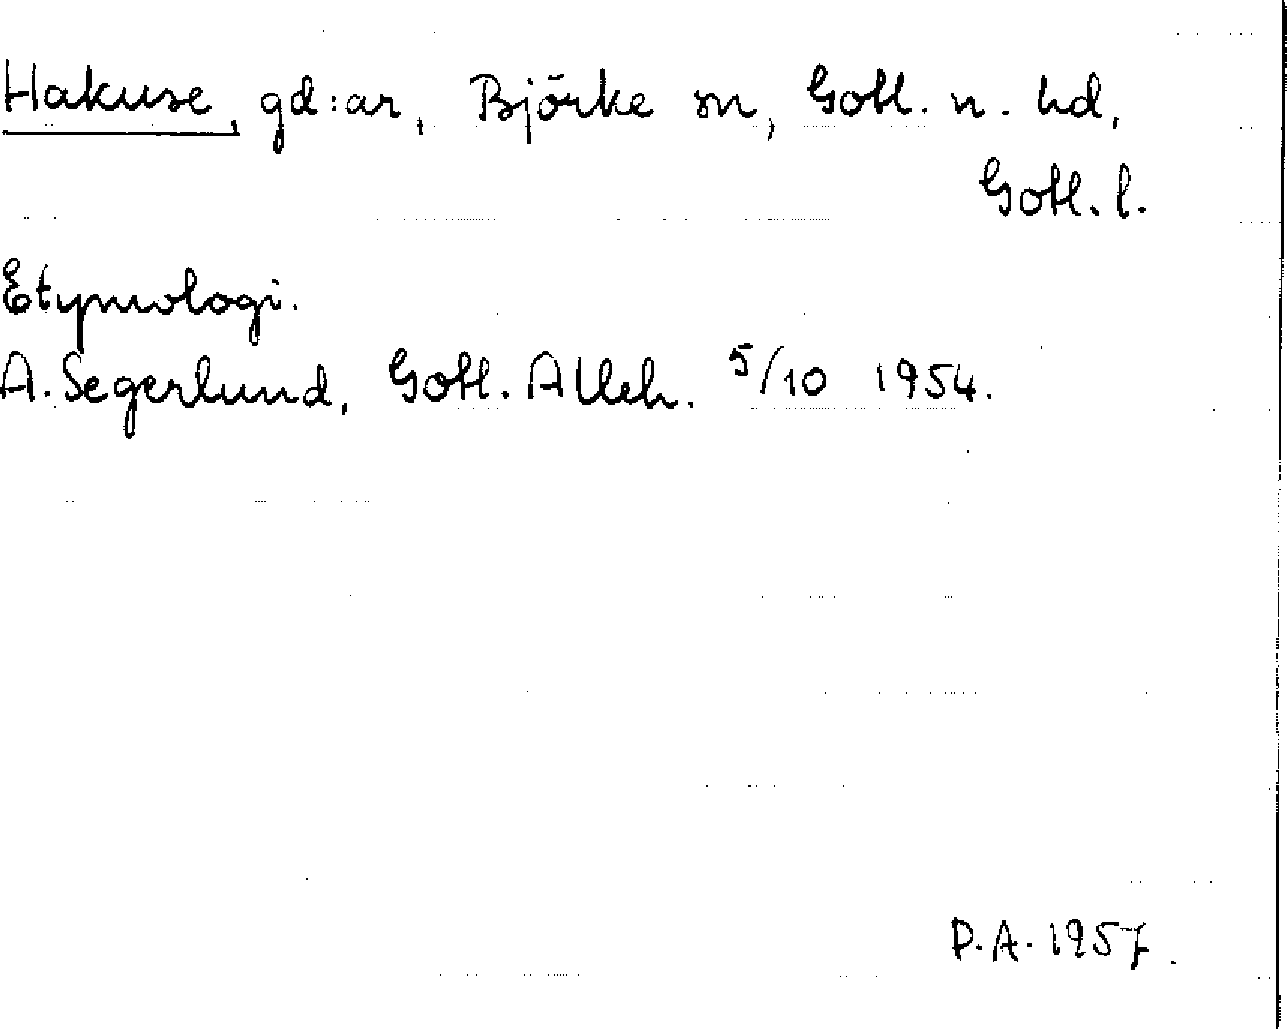 Hakuse, gd:ar, Björke sn, Gotl. n. hd,
Gotl. l.
Etymologi.
A. Segerlund, Gotl. Alleh. 5/10 1954.
P.A. 1957.